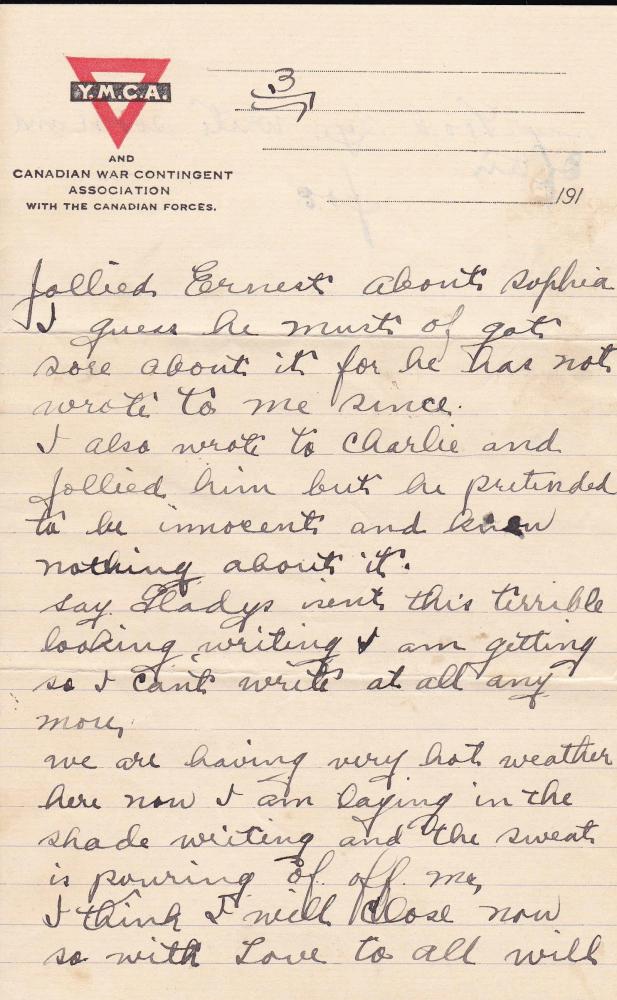 Y.M.C.A.
AND
CANADIAN WAR CONTINGENT
ASSOCIATION
WITH THE CANADIAN FORCES.
3
191
Jollied Ernest about Sophia
I guess he must of got
sore about it for he has not
wrote to me since.
I also wrote to Charlie and
Jollied him but he pretended
to be innocent and knew
nothing about it.
say Gladys isent this terrible
looking writing I am getting
so I can't write at all any
more,
we are having very hot weather
here now I am laying in the
shade writing and the sweat
is pouring of off me,
I think I will Close now
so with Love to all will